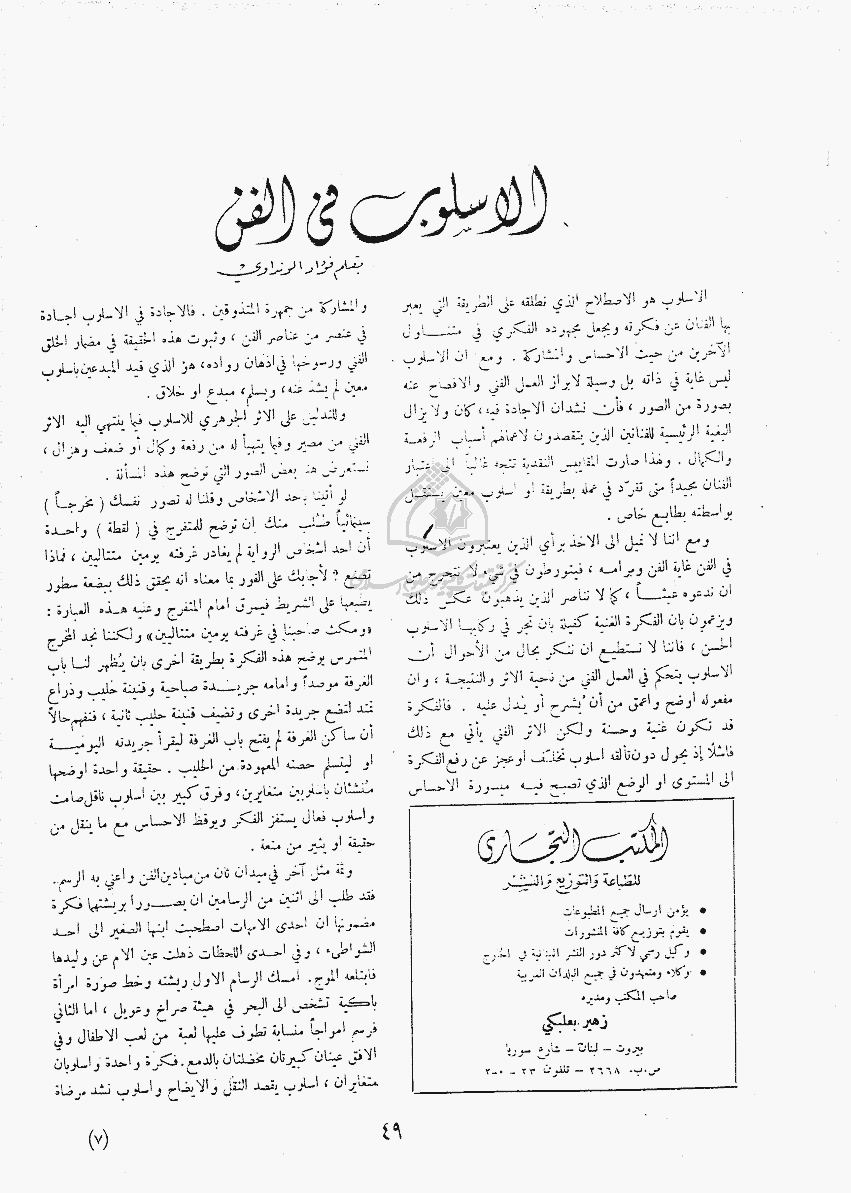 الاسلوب في الفن
بقلم فؤاد الونداوي
الاسلوب هو الاصطلاح الذي نطلقه على الطريقة التي يعبر
بها الفنان عن فكرته ويجعل مجهوده الفكري في متنـــاول
الآخرين من حيث الاحساس والمشاركة . ومع ان الاسلوب
ليس غاية في ذاته بل وسيلة لابراز العمل الفني والافصاح عنه
بصورة من الصور ، فأن نشدان الاجادة فيه، كان ولا يزال
البغية الرئيسية للفنانين الذين يتقصدون لاعمالهم أسباب الرفعة
والكمال . ولهذا صارت المقاييس النقدية تتجه غالباً الى اعتبار
الفنان مجيداً متى تفرّد في عمله بطريقة او اسلوب معين يستقل
بواسطته بطابع خاص .
ومع اننا لا نميل الى الاخذ برأي الذين يعتبرون الاسلوب
في الفن غاية الفن ومرامه ، فيتورطون في شيء لا نتحرج من
ان ندعوه عبثــاً ، كما لا نناصر الذين يذهبون عكس ذلك
ويزعمون بان الفكرة الغنية كفيلة بان تجر في ركابها الاسلوب
الحسن ، فاننا لا نستطيع ان ننكر بحال من الأحوال أن
الاسلوب يتحكم في العمل الفني من ناحية الاثر والنتيجة ، وان
مفعوله أوضح واعمق من أن يُشرح أو يُدل عليه . فالفكرة
قد تكون غنية وحسنة ولكن الاثر الفني يأتي مع ذلك
فاشلاً إذ يحول دون تألقه اسلوب متخلف او عجز عن رفع الفكرة
الى المستوى او الوضع الذي تصبح فيـه ميسورة الاحساس
والمشاركة من جمهرة المتذوقين . فالاجادة في الاسلوب اجـادة
في عنصر من عناصر الفن ، وثبوت هذه الحقيقة في مضمار الخلق
الفني ورسوخها في اذهان رواده، هو الذي قيد المبدعين باسلوب
معين لم يشذ عنه، وبسلم، مبدع او خلاق .
وللتدليل على الاثر الجوهري للاسلوب فيما ينتهي اليه الاثر
الفني من مصير وفيما يتهيأ له من رفعة وكمال أو ضعف وهزال ،
نستعرض هنا بعض الصور التي توضح هذه المسألة .
لو أتينا باحد الاشخاص وقلنا له تصور نفسك ( مخرجـاً )
سينمائياً طُلب منك ان توضح للمتفرج في ( لقطة ) واحـدة
أن احد اشخاص الرواية لم يغادر غرفته يومين متتاليين ، فماذا
تصنع ؟ لأجابك على الفور بما معناه انه يحقق ذلك ببضعة سطور
يضعها على الشريط فيمرق امام المتفرج وعليه هــذه العبارة :
«ومكث صاحبنا في غرفته يومين متتاليين» ولكننا نجد المخرج
المتمرس يوضح هذه الفكرة بطريقة اخرى بان يُظهر لنـا باب
الغرفة موصداً وامامه جريــدة صباحية وقنينة حليب وذراع
تمتد لتضع جريدة اخرى وتضيف قنينة حليب ثانية ، فنفهم حالاً
أن ساكن الغرفة لم يفتح باب الغرفة ليقرأ جريدته اليوميــة
او ليتسلم حصته المعهودة من الحليب . حقيقة واحدة اوضحها
مُنشئان باسلوبين متغايرين، وفرق كبير بين اسلوب ناقل صامت
واسلوب فعال يستفز الفكر ويوقظ الاحساس مع ما ينقل من
حقيقة او يثير من متعة .
وثمة مثل آخر في ميدان ثان من ميادين الفن واعني به الرسم.
فقد طلب الى اثنين من الرسامين ان يصــورا بريشتهما فكرة
مضمونها ان احدى الامهات اصطحبت ابنها الصغير الى احـد
الشواطىء ، وفي احـدى اللحظات ذهلت عين الام عن وليدها
فابتلعه الموج. امسك الرسام الاول ريشته وخط صورة امرأة
باكية تشخص الى البحر في هيئة صراخ وعويل ، اما الثاني
فرسم امواجاً منسابة تطوف عليها لعبة من لعب الاطفال وفي
الافق عينان كبيرتان مخضلتان بالدمع . فكرة واحدة واسلوبان
متغايران ، اسلوب يقصد النقل والايضاح واسلوب نشد مرضاة
المكتب التجاري
للطباعة والتوزيع والنشر
• يؤمن ارسال جميع المطبوعات
• يقوم بتوزيع كافة المنشورات
• وكيل رسمي لاكثر دور النشر اللبنانية في الخارج
• وكلاء ومتعهدون في جميع البلدان العربية
صاحب المكتب ومديره
زهير بعلبكي
بيروت – لبنان – شارع سوريا
ص.ب. ٢٦٦٨ – تلفون ٢٣ – ٢٠٠
٤٩
(٧)